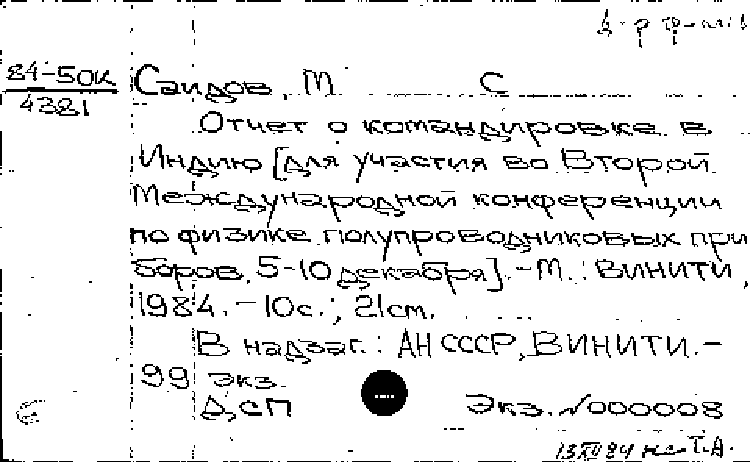 84-50к
4381
Саидов, М С
Отчет о командировке в
Индию [для участия во Второй
Международной конференции
по физике полупроводниковых при
боров, 5-10 декабря]. - М.: ВИНИТИ,
1984. - 10с.; 21см.
В надзаг.: АН СССР, ВИНИТИ. -
99 экз.
ДСП Экз. №000008